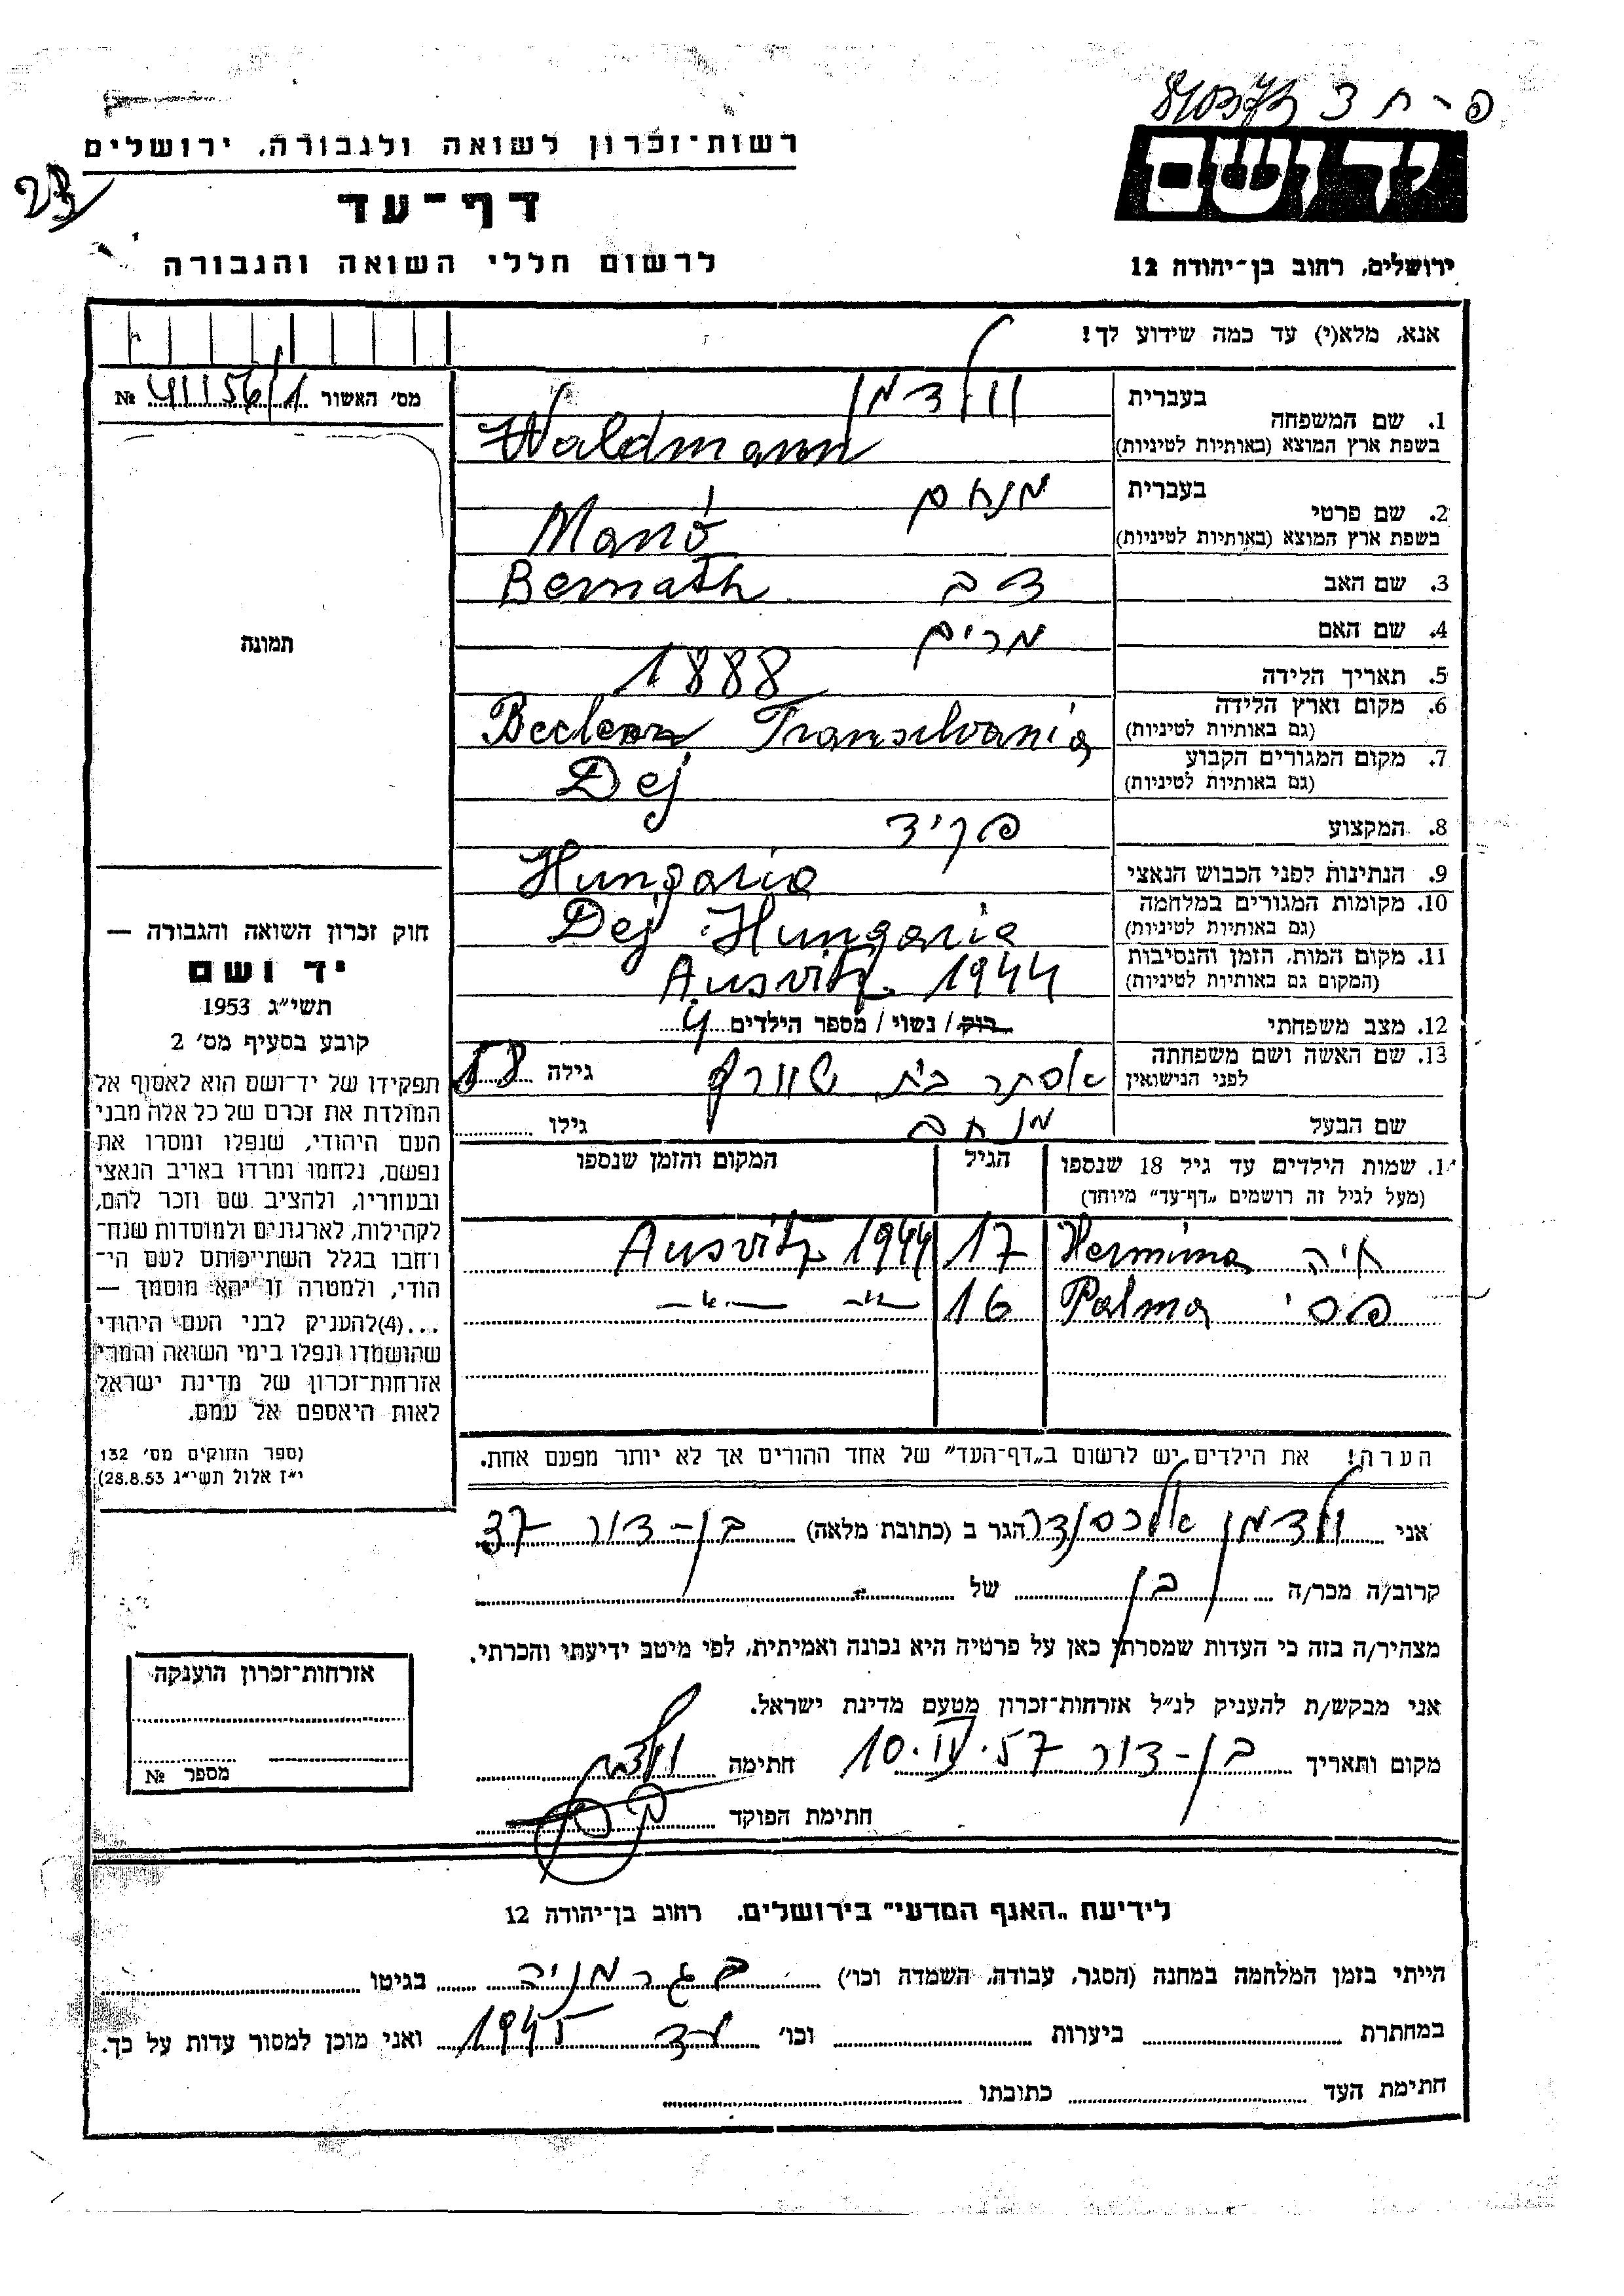 פ - ח צ
רשות-זכרון לשואה ולגבורה, ירושלים
ידושם
דף-עד
לרשום חללי השואה והגבורה
ירושלים, רחוב בן-יהודה 12
אנא, מלא(י) עד כמה שידוע לך!
מס׳ האשור 41156/1 №
בעברית וולדמן
1. שם המשפחה
בשפת ארץ המוצא (באותיות לטיניות) Waldmann
בעברית מנחם
2. שם פרטי
בשפת ארץ המוצא (באותיות לטיניות) Manó
3. שם האב דב Bernath
4. שם האם מרים
5. תאריך הלידה 1888
6. מקום וארץ הלידה Beclean Transilvania
(גם באותיות לטיניות)
7. מקום המגורים הקבוע Dej
(גם באותיות לטיניות)
8. המקצוע פקיד
9. הנתינות לפני הכבוש הנאצי Hungaria
10. מקומות המגורים במלחמה Dej Hungaria
(גם באותיות לטיניות)
11. מקום המות, הזמן והנסיבות Ausvitz 1944
(המקום גם באותיות לטיניות)
12. מצב משפחתי רוק / נשוי / מספר הילדים 4
13. שם האשה ושם משפחתה אסתר בת שוורץ גילה
לפני הנישואין
שם הבעל מנחם גילו
14. שמות הילדים עד גיל 18 שנספו הגיל המקום והזמן שנספו
(מעל לגיל זה רושמים „דף-עד״ מיוחד)
חיה Hermina 17 Ausvitz 1944
פסי Palma 16 —״— —״—
הערה! את הילדים יש לרשום ב„דף-העד״ של אחד ההורים אך לא יותר מפעם אחת.
תמונה
חוק זכרון השואה והגבורה —
יד ושם
תשי״ג 1953
קובע בסעיף מס׳ 2
תפקידו של יד-ושם הוא לאסוף אל
המולדת את זכרם של כל אלה מבני
העם היהודי, שנפלו ומסרו את
נפשם, נלחמו ומרדו באויב הנאצי
ובעוזריו, ולהציב שם וזכר להם,
לקהילות, לארגונים ולמוסדות שנח-
רבו בגלל השתייכותם לעם הי-
הודי, ולמטרה זו יהא מוסמך —
...(4)להעניק לבני העם היהודי
שהושמדו ונפלו בימי השואה והמרי
אזרחות-זכרון של מדינת ישראל
לאות היאספם אל עמם.
(ספר החוקים מס׳ 132
י״ז אלול תשי״ג 28.8.53)
אני ולדמן אלכסנדר הגר ב (כתובת מלאה) בן-דור 37
קרוב/ה מכר/ה בן של
מצהיר/ה בזה כי העדות שמסרתי כאן על פרטיה היא נכונה ואמיתית, לפי מיטב ידיעתי והכרתי.
אני מבקש/ת להעניק לנ״ל אזרחות-זכרון מטעם מדינת ישראל.
מקום ותאריך בן-דור 10.IV.57 חתימה ולדמן
חתימת הפוקד
אזרחות-זכרון הוענקה
מספר №
לידיעת „האגף המדעי״ בירושלים. רחוב בן-יהודה 12
הייתי בזמן המלחמה במחנה (הסגר, עבודה, השמדה וכו׳) בגרמניה בגיטו
במחתרת ביערות וכו׳ עד 1945 ואני מוכן למסור עדות על כך.
חתימת העד כתובתו